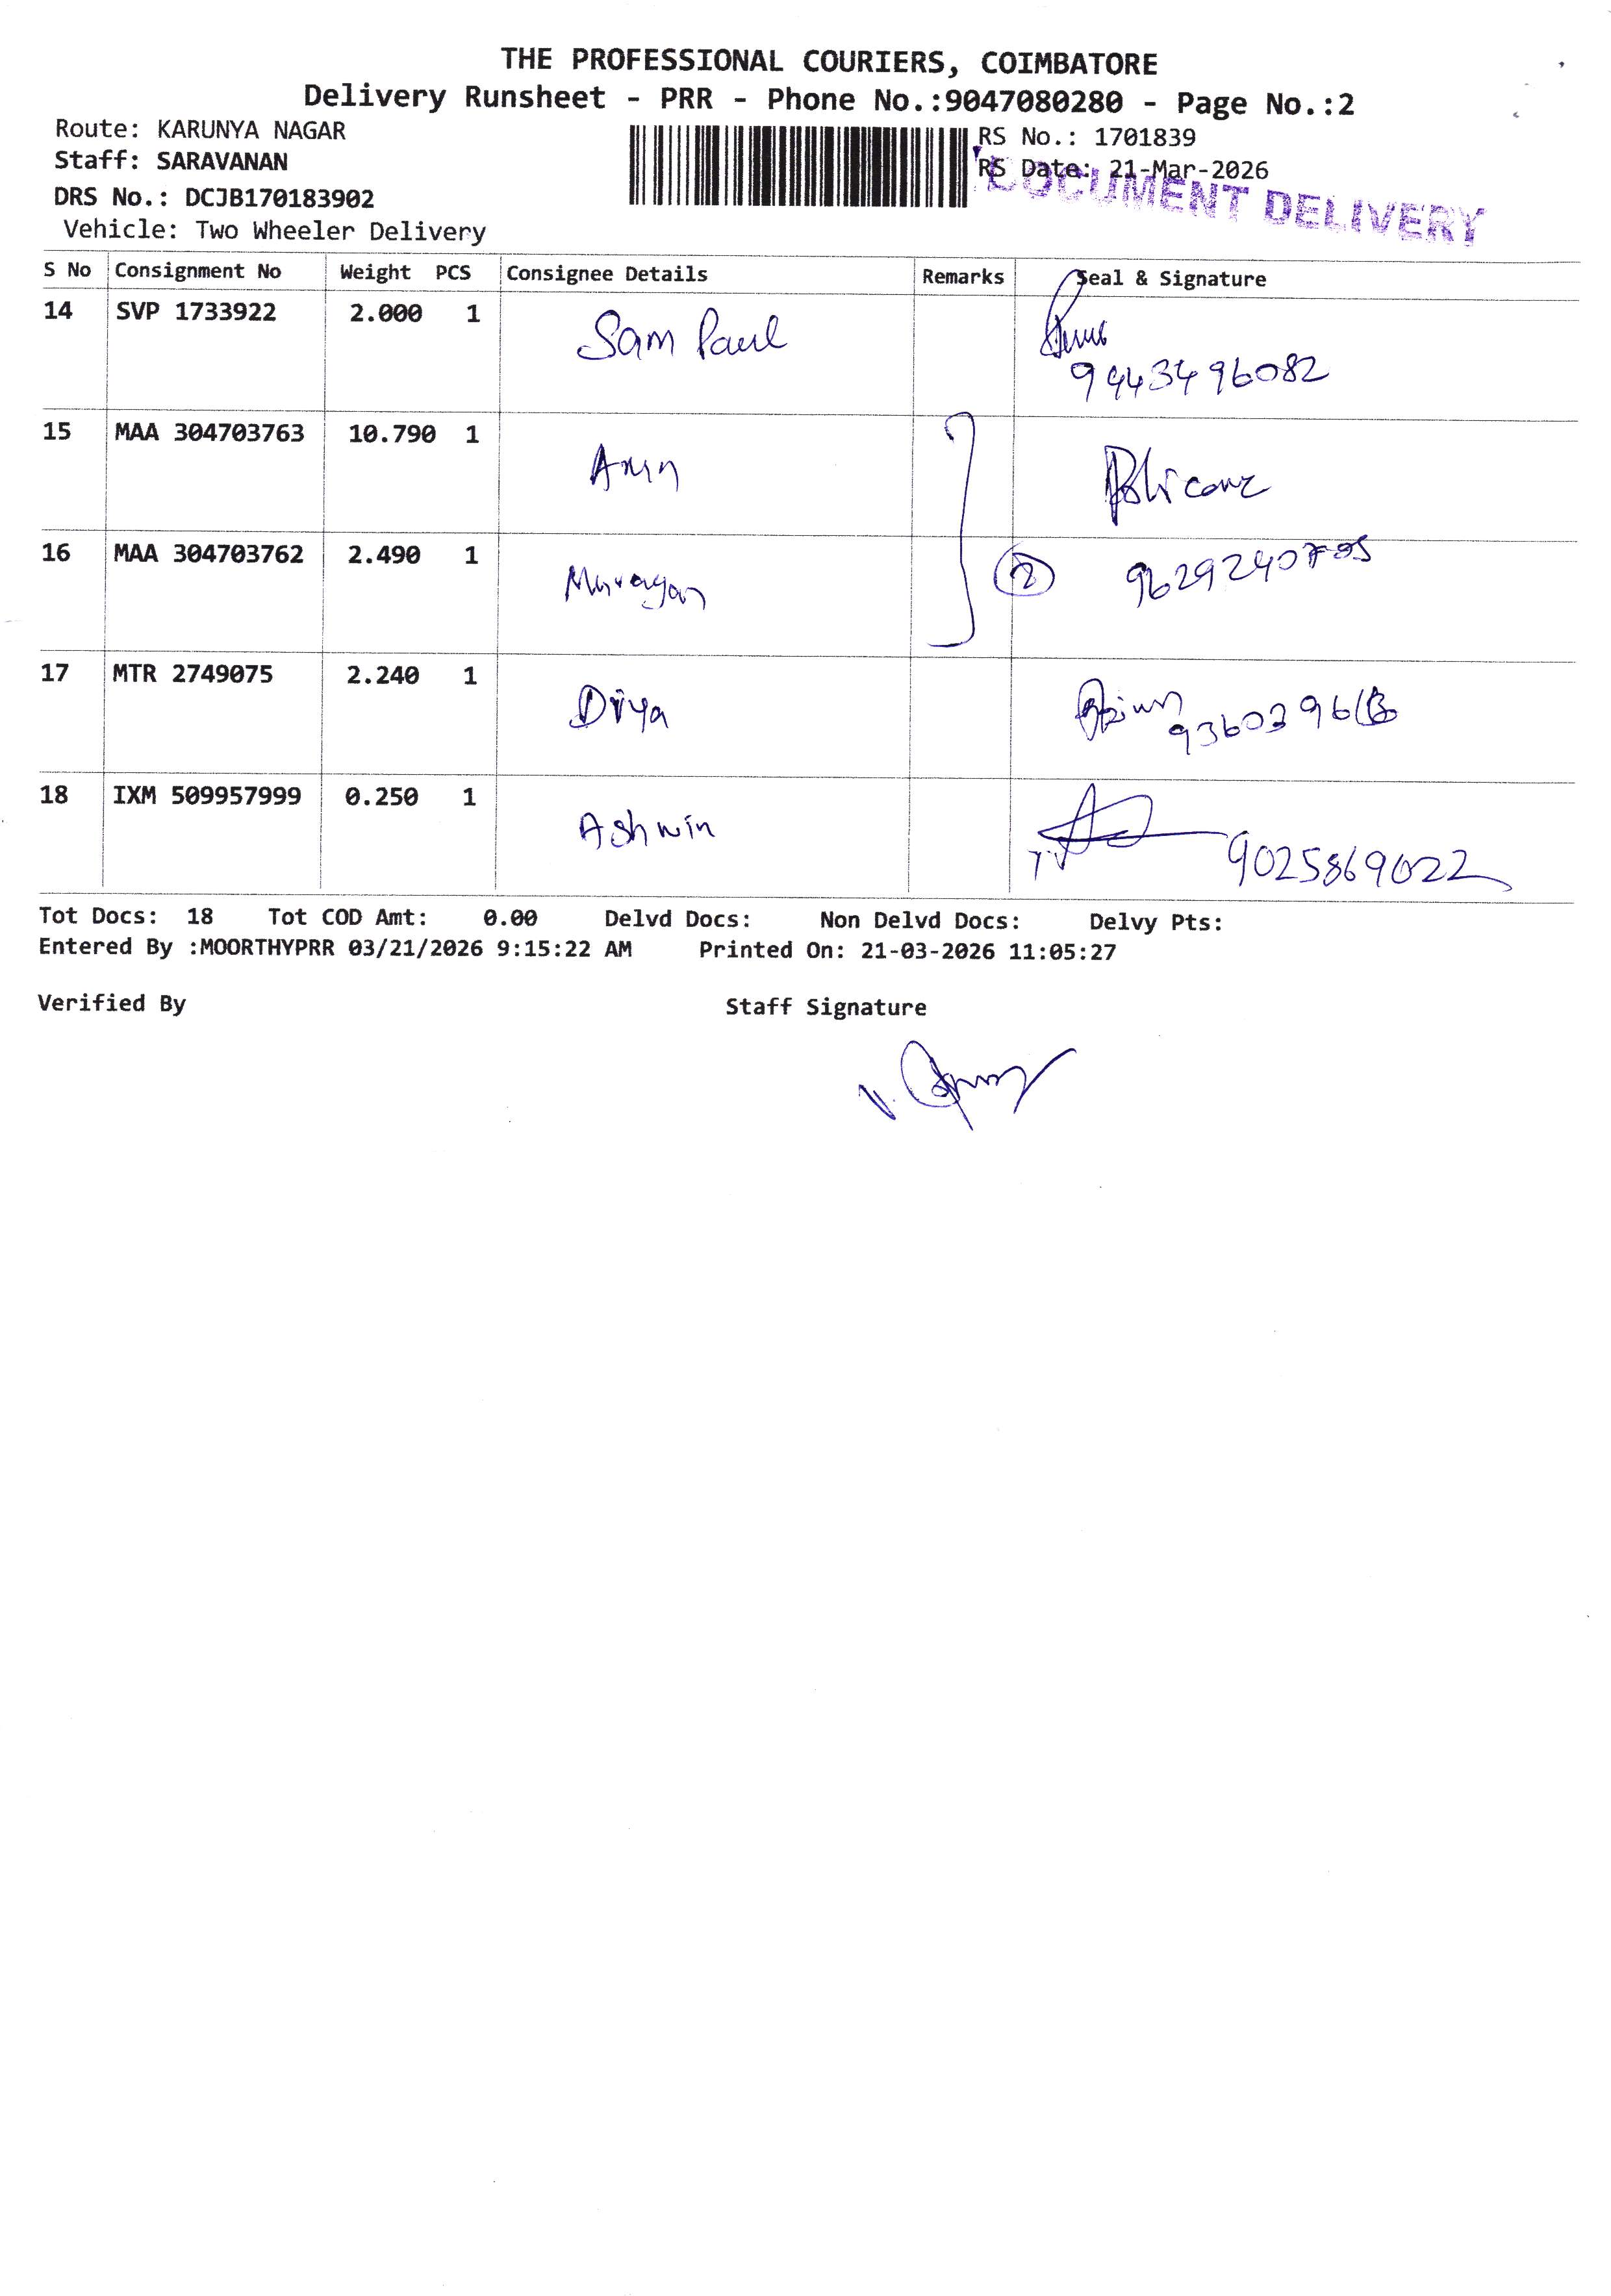 THE PROFESSIONAL COURIERS, COIMBATORE
Delivery Runsheet - PRR - Phone No.:9047080280 - Page No.:2
Route: KARUNYA NAGAR
RS No.: 1701839
Staff: SARAVANAN
RS Date: 21-Mar-2026
DOCUMENT DELIVERY
DRS No.: DCJB170183902
Vehicle: Two Wheeler Delivery
S No Consignment No Weight PCS Consignee Details Remarks Seal & Signature
14 SVP 1733922 2.000 1 Sam Paul
9443496082
15 MAA 304703763 10.790 1 Arun
16 MAA 304703762 2.490 1 Murugan 2 9629240705
17 MTR 2749075 2.240 1 Diya
18 IXM 509957999 0.250 1 Ashwin
9025869022
Tot Docs: 18 Tot COD Amt: 0.00 Delvd Docs: Non Delvd Docs: Delvy Pts:
Entered By :MOORTHYPRR 03/21/2026 9:15:22 AM Printed On: 21-03-2026 11:05:27
Verified By Staff Signature